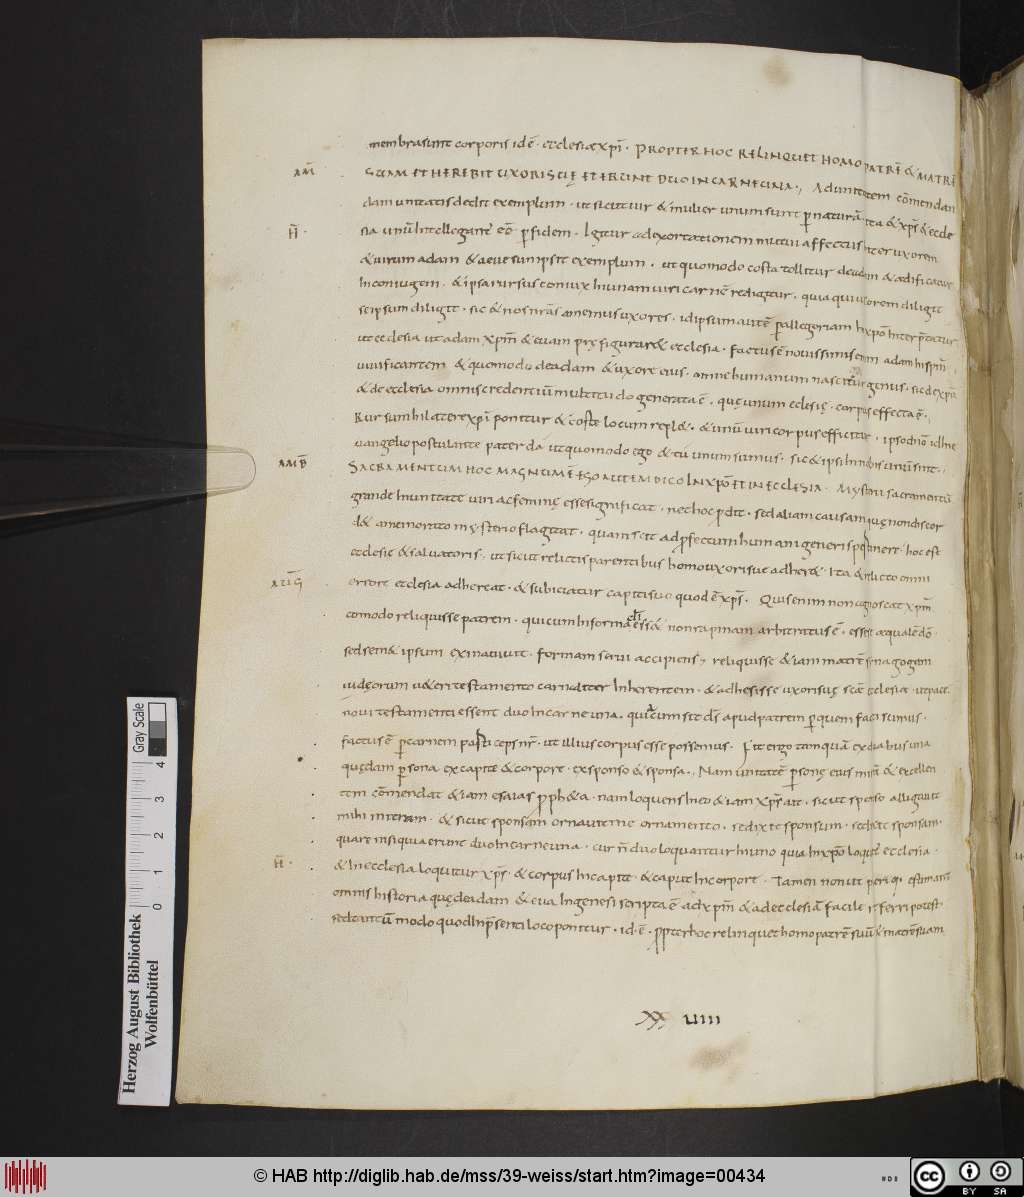 membra sunt corporis id ē · ecclesiae xp̄i · PROPTER HOC RELINQUET HOMO PATRĒ & MATRĒ
AM̄
SUAM ET HEREBIT UXORI SUĘ ET ERUNT DUO IN CARNE UNA · Ad unitatem cōmendan
dam unitatis dedit exemplum · ut sicut uir & mulier unum sunt p naturā ita & xp̄s & eccle
H̄ ·
sia unū intellegant̄ eē p fidem · Igitur ad exortationem mutui affectus inter uxorem
& uirum adam & aeuae sumpsit exemplum · ut quomodo costa tollitur de adam & aedificatur
in coniugem · & ipsa rursus coniux in unam uiri carnē redigitur · quia qui uxorem diligit
se ipsum diligit · sic & nos nrās amemus uxores · id ipsum autē p allegoriam in xpō interp̄tatur
ut ecclesia ut adam xp̄m & euam pręfiguraret ecclesia · factus ē nouissimus enim adam in sp̄m
uiuificantem & quomodo de adam & uxore eius · omne humanum nascitur genus · sic de xpō
& de ecclesia omnis credentiū multitudo generata ē · quę unum ecclesię · corpus effecta ē ·
Rursum in latere xp̄i ponitur & costę locum repl& · & unū uiri corpus efficitur · ipso dn̄o id in e
uangelio postulante pater da ut quomodo ego & tu unum sumus · sic & ipsi in nobis unū sint ·
AMB̄
SACRAMENTUM HOC MAGNUM Ē EGO AUTEM DICO IN XPŌ ET IN ECCLESIA · Mysterii sacramentū
grande in unitate uiri ac feminę esse significat · nec hoc p̄dit · sed aliam causam quę non discor
d& a memorato mysterio flagitat · quam scit ad p̄fectum humani generis p̄tinere · hoc est
ecclesie & saluatoris · ut sicut relictis parentibus homo uxori suę adher& · ita & relicto omni
AUḠ
errore ecclesia adhereat · & subiciatur capiti suo quod ē xp̄s · Quis enim non agnoscat xp̄m
eo modo reliquisse patrem · qui cum in forma dī ess& non rapinam arbitratus ē · esse se aequalē dō ·
sed semet ipsum exinaniuit · formam serui accipiens · reliquisse etiam matrē sinagogam
iudęorum ueteri testamento carnaliter inherentem · & adhesisse uxori suę scāe ecclesiae · ut pace
noui testamenti essent duo in carne una · qui cum sit d̄s apud patrem p quem facti sumus ·
factus ē p carnem particeps nr̄ · ut illius corpus esse possemus · Fit ergo tamquā ex duabus una
quędam psona ex capite & corpore · ex sponso & sponsa · Nam unitatē psonę eius mirā & excellen
tem cōmendat etiam esaias pph&a · nam loquens in eo etiam xp̄s ait · sicut sponso alligauit
mihi mitram · & sicut sponsam ornauit me ornamento · se dixit sponsum · se dixit sponsam ·
quare in si qui a erunt duo in carne una · cur n̄ duo loquantur in uno quia in xpō loquit̄ ecclesia ·
H̄ ·
& in ecclesia loquitur xp̄s · & corpus in capite · & caput in corpore · Tamen non ut pleriq · estimant
omnis historia quę de adam & eua in genesi scripta ē ad xp̄m & ad ecclesiā facile referri potest ·
sed tantū modo quod in p̄senti loco ponitur · id · ē · ppter hoc relinquet homo patrē suū & matrē suam
XX UIIII
Gray Scale
4
3
2
1
0
Herzog August Bibliothek
Wolfenbüttel
© HAB http://diglib.hab.de/mss/39-weiss/start.htm?image=00434
cc BY SA